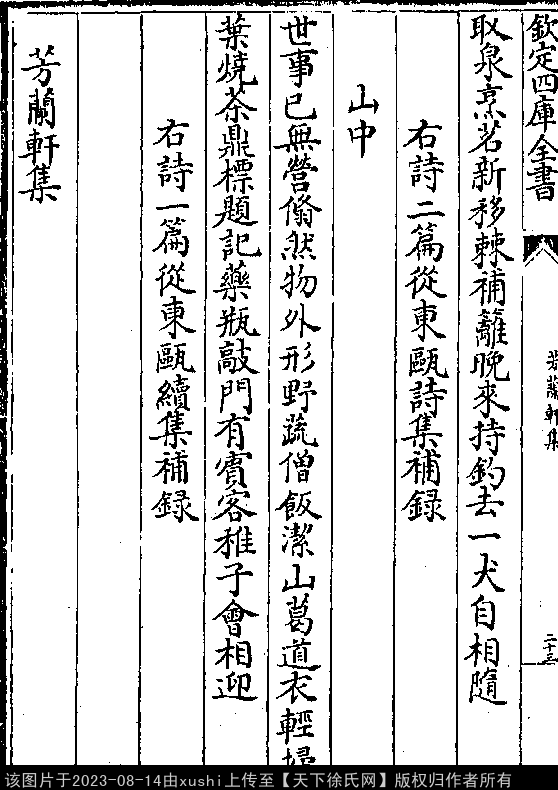 欽定四庫全書
芳蘭軒集
二十三
取泉烹茗新移棘補籬晚來持釣去一犬自相隨
右詩二篇從東甌詩集補録
山中
世事已無營翛然物外形野蔬僧飯潔山葛道衣輕掃
葉燒茶鼎標題記藥瓶敲門有賔客稚子會相迎
右詩一篇從東甌續集補録
芳蘭軒集
该图片于2023-08-14由xushi上传至【天下徐氏网】版权归作者所有